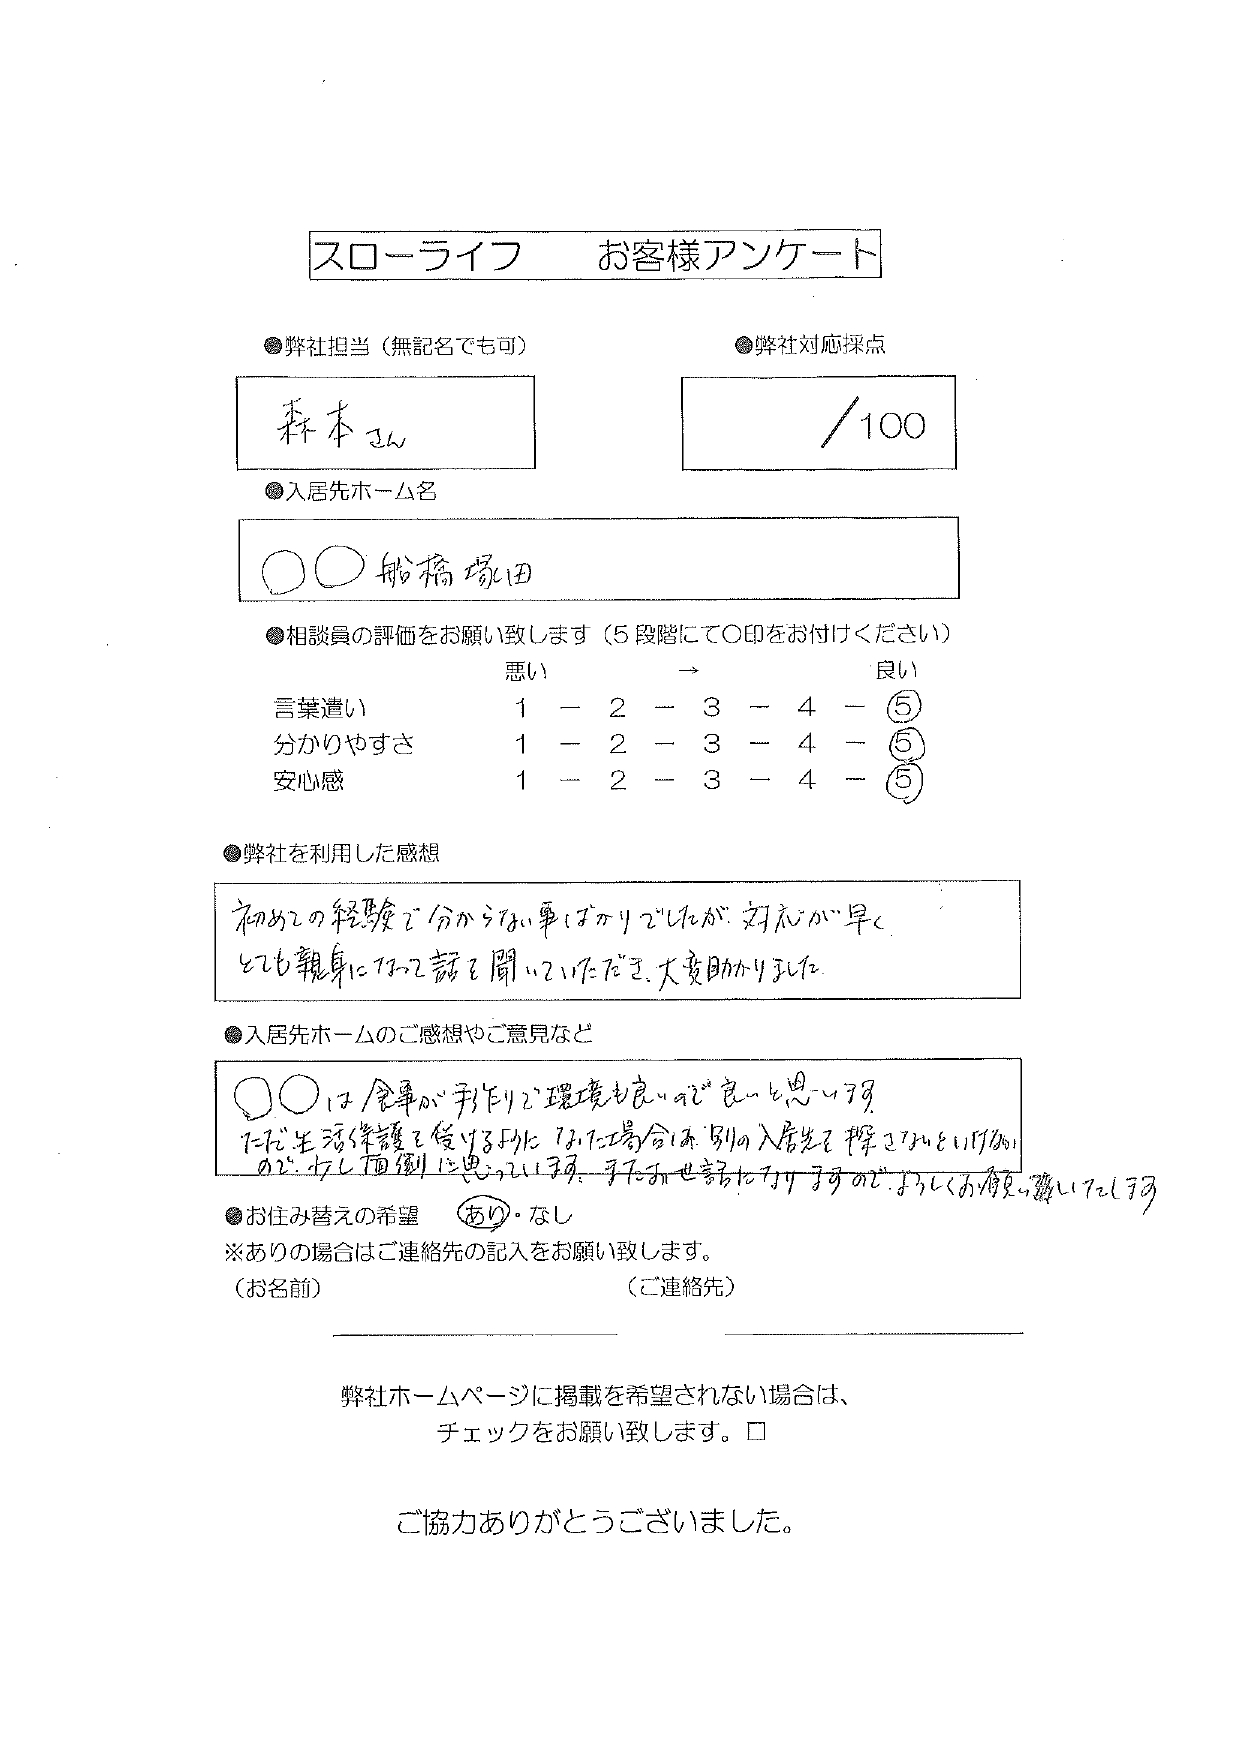 スローライフ　お客様アンケート
●弊社担当（無記名でも可）　●弊社対応採点
森本さん　/100
●入居先ホーム名
○○船橋塚田
●相談員の評価をお願い致します（5段階にて○印をお付けください）
悪い　→　良い
言葉遣い　1 － 2 － 3 － 4 － ⑤
分かりやすさ　1 － 2 － 3 － 4 － ⑤
安心感　1 － 2 － 3 － 4 － ⑤
●弊社を利用した感想
初めての経験で分からない事ばかりでしたが、対応が早く
とても親身になって話を聞いていただき、大変助かりました。
●入居先ホームのご感想やご意見など
○○は食事が手作りで環境も良いので良いと思います
ただ生活保護を受けるようになった場合は、別の入居先を探さないといけない
ので、少し面倒に思っています。またお世話になりますので、よろしくお願い致します
●お住み替えの希望　あり・なし
※ありの場合はご連絡先の記入をお願い致します。
（お名前）　（ご連絡先）
弊社ホームページに掲載を希望されない場合は、
チェックをお願い致します。□
ご協力ありがとうございました。